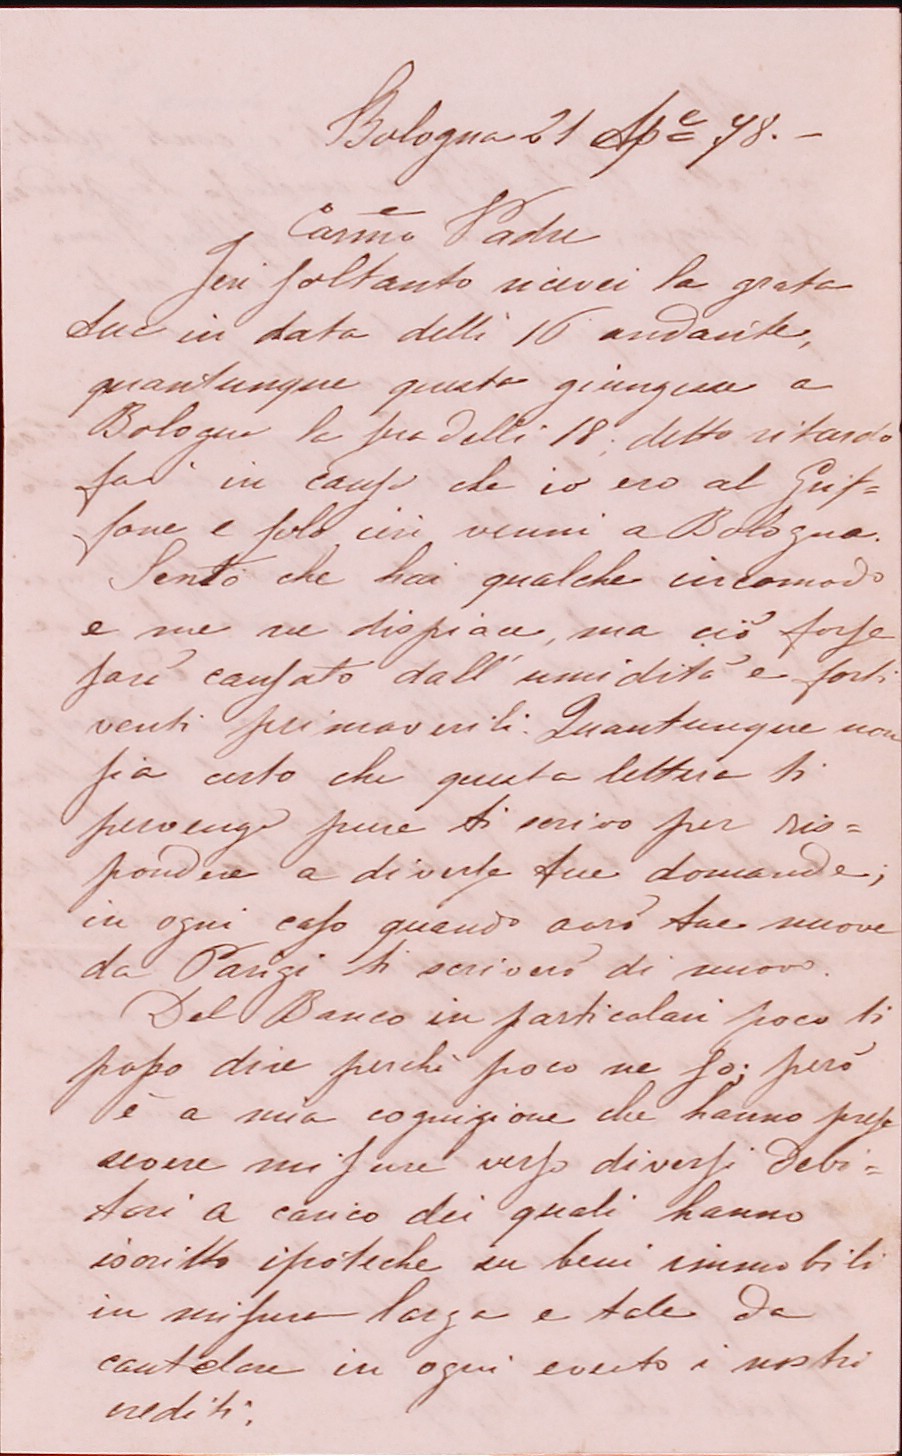 Bologna 21 Ap.e 78. -
Carmo Padre
Jeri soltanto ricevei la grata
tua in data delli 16 andante,
quantunque questa giungesse a
Bologna la sera delli 18; detto ritardo
fu in causa che io ero al Grif=
fone e solo ieri venni a Bologna.
Sento che hai qualche incomodo
e me ne dispiace, ma ciò forse
sarà causato dall'umidità e forti
venti primaverili. Quantunque non
sia certo che questa lettera ti
pervenga pure ti scrivo per ris=
pondere a diverse tue domande;
in ogni caso quando avrò tue nuove
da Parigi ti scriverò di nuovo.
Del Banco in particolari poco ti
posso dire perchè poco ne so; però
è a mia cognizione che hanno prese
severe misure verso diversi debi=
tori a carico dei quali hanno
iscritto ipoteche su beni immobili
in misura larga e tale da
cautelare in ogni evento i nostri
crediti;